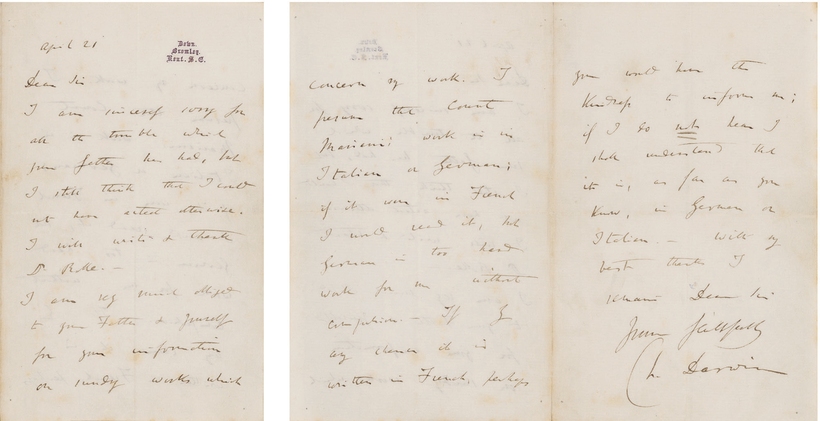 April 21
Down,
Bromley,
Kent. S.E.
Dear Sir
I am sincerely sorry for
all the trouble which
your Father has had, but
I still think that I could
not have acted otherwise.
I will write & thank
Dr
I am very much obliged
to your Father & yourself
for your information
on sundry works which
concern my work. I
presume that Count
work is in
Italian or German;
if it were in French
I would read it, but
German is too hard
work for me without
compulsion.— If by
any chance it is
written in French, perhaps
you would have the
kindness to inform me;
if I do not hear I
shall understand that
it is, as far as you
know, in German or
Italian.— With my
best thanks I
remain Dear Sir
Yours faithfully
Ch. Darwin